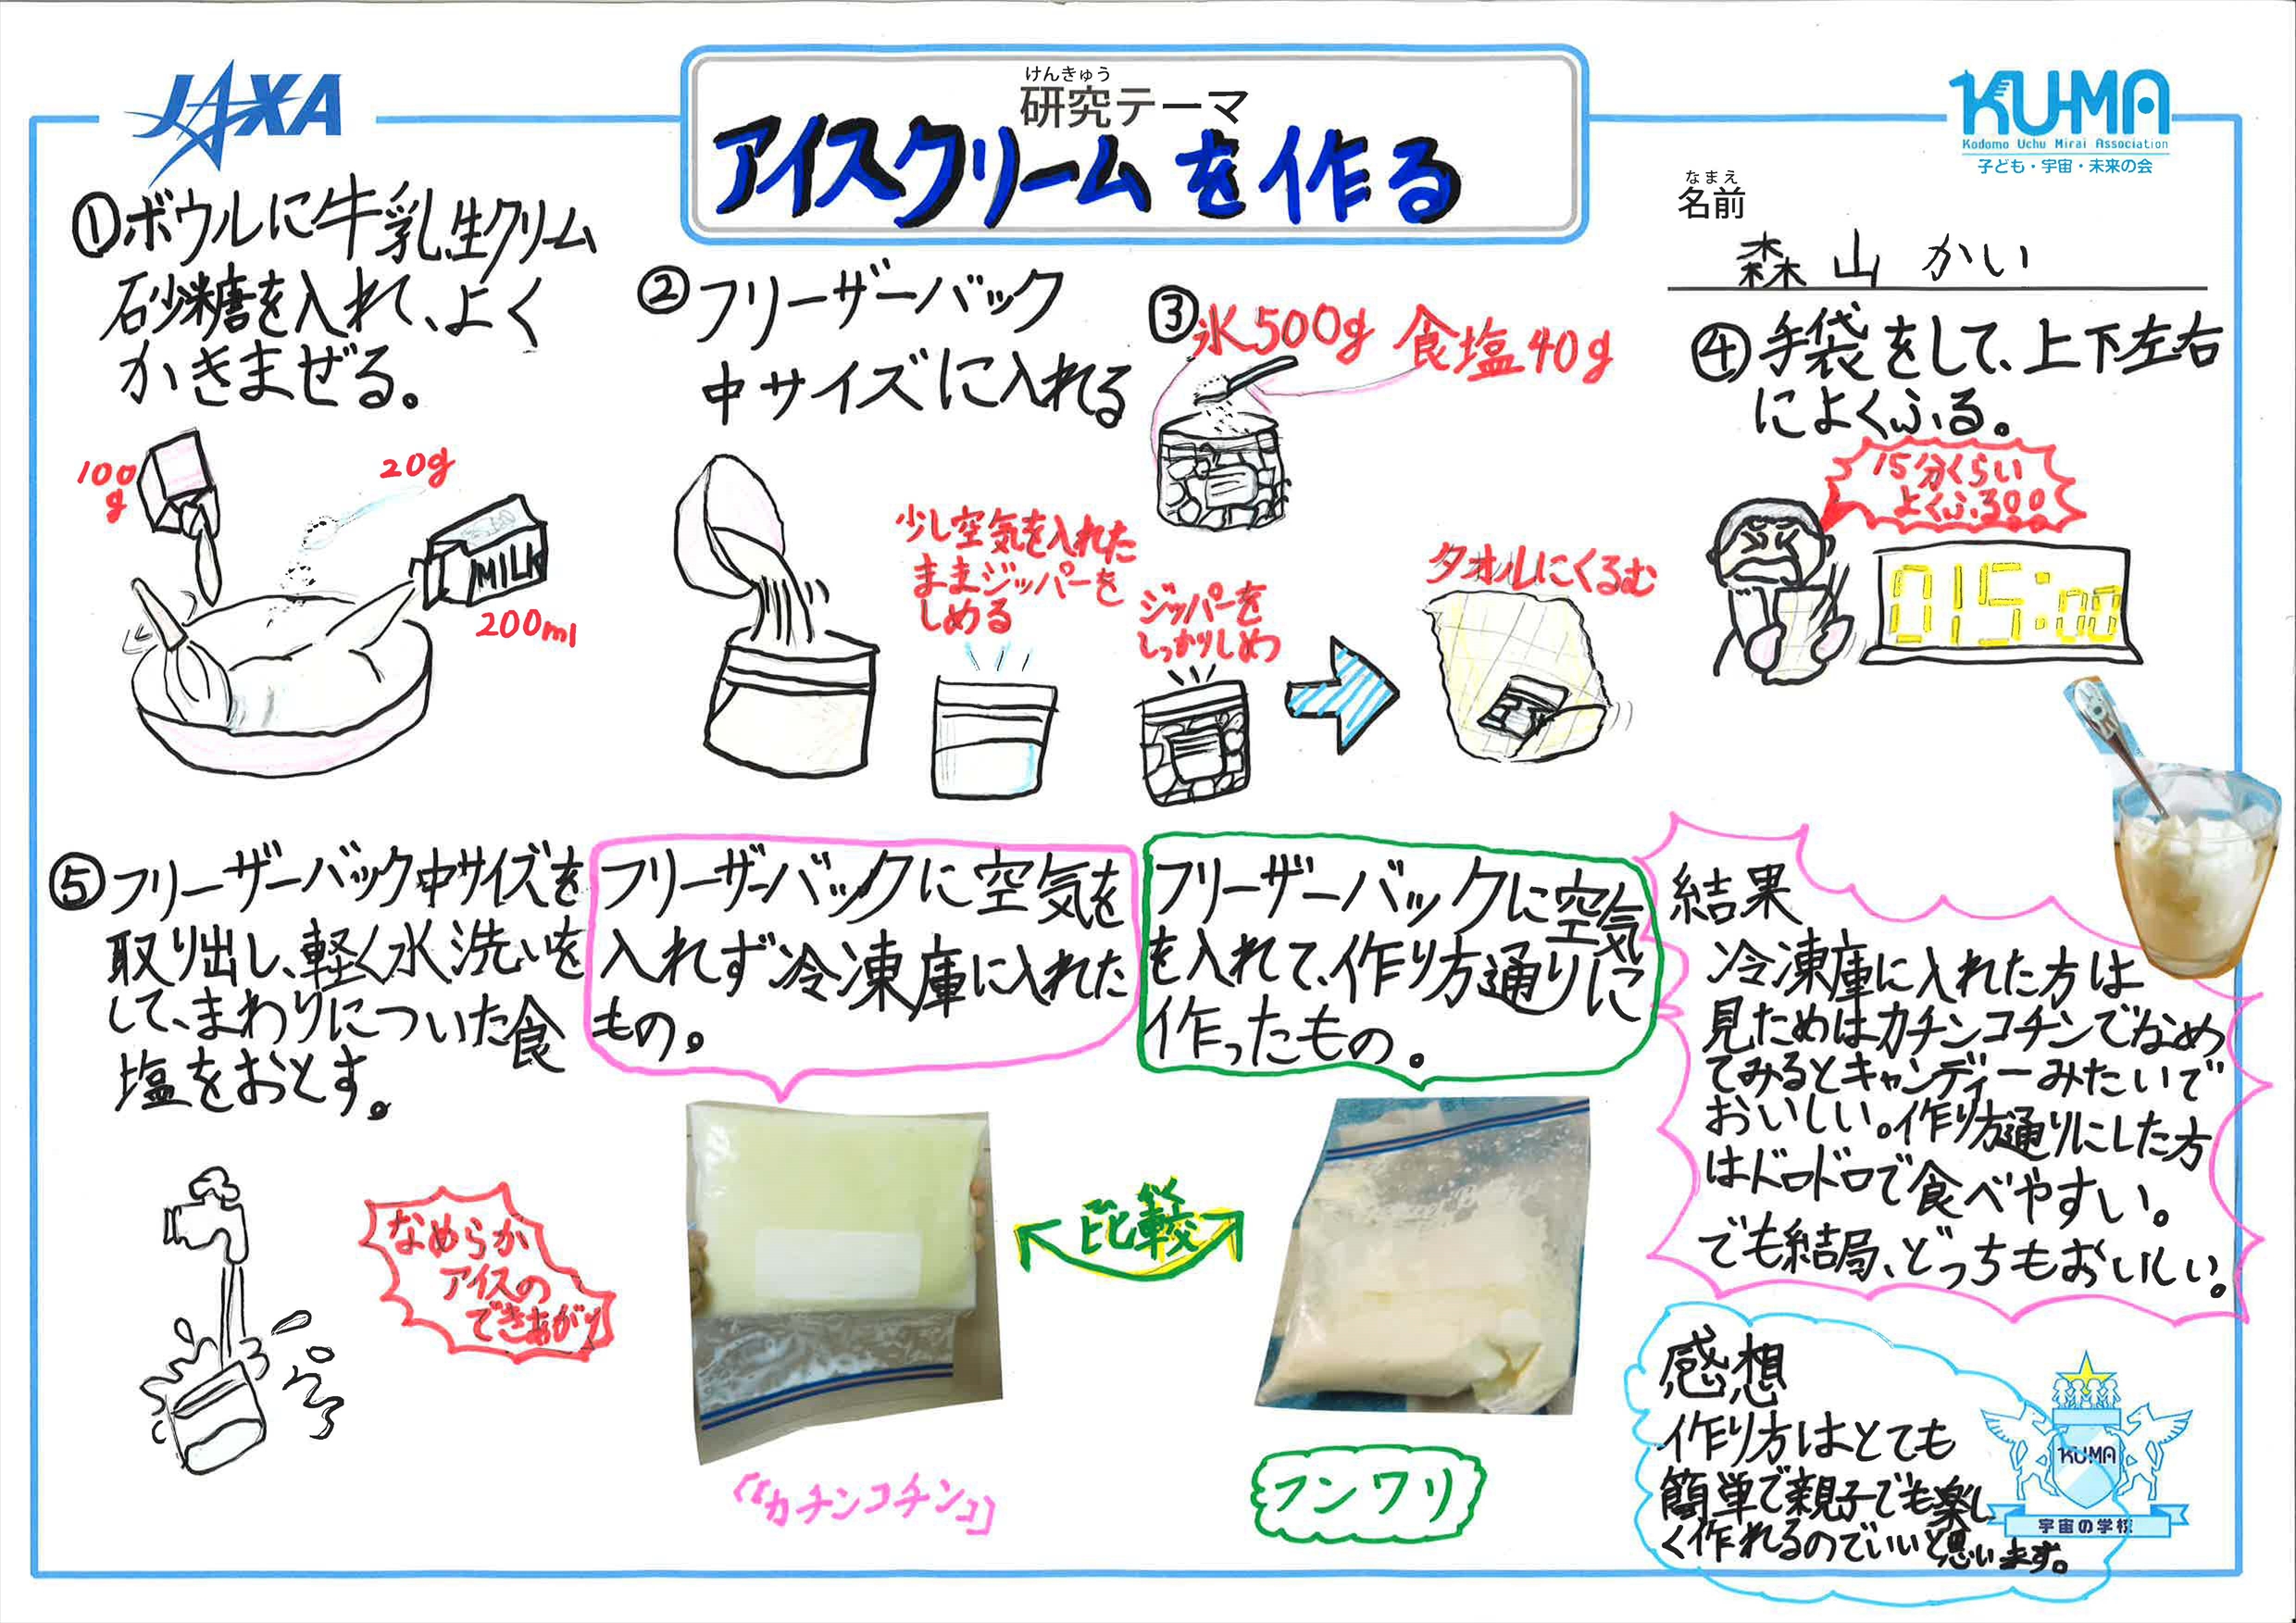 JAXA
けんきゅう
研究テーマ
アイスクリームを作る
KU-MA
Kodomo Uchu Mirai Association
子ども・宇宙・未来の会
なまえ
名前
森山 かい
①ボウルに牛乳、生クリーム
砂糖を入れて、よく
かきまぜる。
100
g
20g
MILK
200ml
②フリーザーバック
中サイズに入れる
少し空気を入れた
ままジッパーを
しめる
③氷500g 食塩40g
ジッパーを
しっかりしめ
タオルにくるむ
④手袋をして、上下左右
によくふる。
15分くらい
よくふる。。
015:00
⑤フリーザーバック中サイズを
取り出し、軽く水洗いを
して、まわりについた食
塩をおとす。
なめらか
アイスの
できあがり
フリーザーバックに空気を
入れず冷凍庫に入れた
もの。
フリーザーバックに空気
を入れて、作り方通りに
作ったもの。
比較
「カチンコチンコ」
フンワリ
結果
冷凍庫に入れた方は
見ためはカチンコチンでなめ
てみるとキャンディーみたいで
おいしい。作り方通りにした方
はドロドロで食べやすい。
でも結局、どっちもおいしい。
感想
作り方はとても
簡単で親子でも楽し
く作れるのでいいと思います。
KU-MA
宇宙の学校